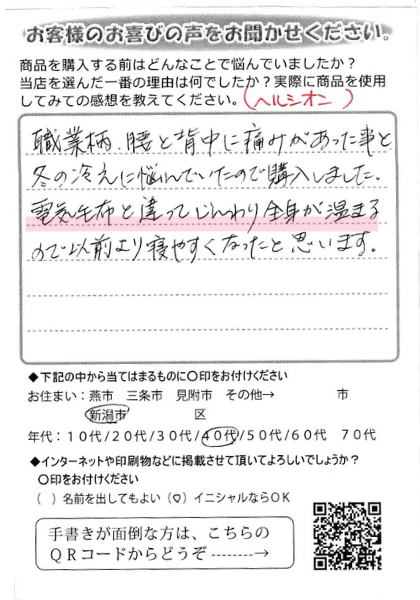 お客様のお喜びの声をお聞かせください。
商品を購入する前はどんなことで悩んでいましたか?
当店を選んだ一番の理由は何でしたか?実際に商品を使用
してみての感想を教えてください。(ヘルシオン)
職業柄、腰と背中に痛みがあった事と
冬の冷えに悩んでいたので購入しました。
電気毛布と違ってじんわり全身が温まる
ので以前より寝やすくなったと思います。
◆下記の中から当てはまるものに〇印をお付けください
お住まい:燕市 三条市 見附市 その他→ 市
新潟市 区
年代:10代/20代/30代/40代/50代/60代 70代
◆インターネットや印刷物などに掲載させて頂いてよろしいでしょうか?
〇印をお付けください
( )名前を出してもよい(〇)イニシャルならOK
手書きが面倒な方は、こちらの
QRコードからどうぞ--------→